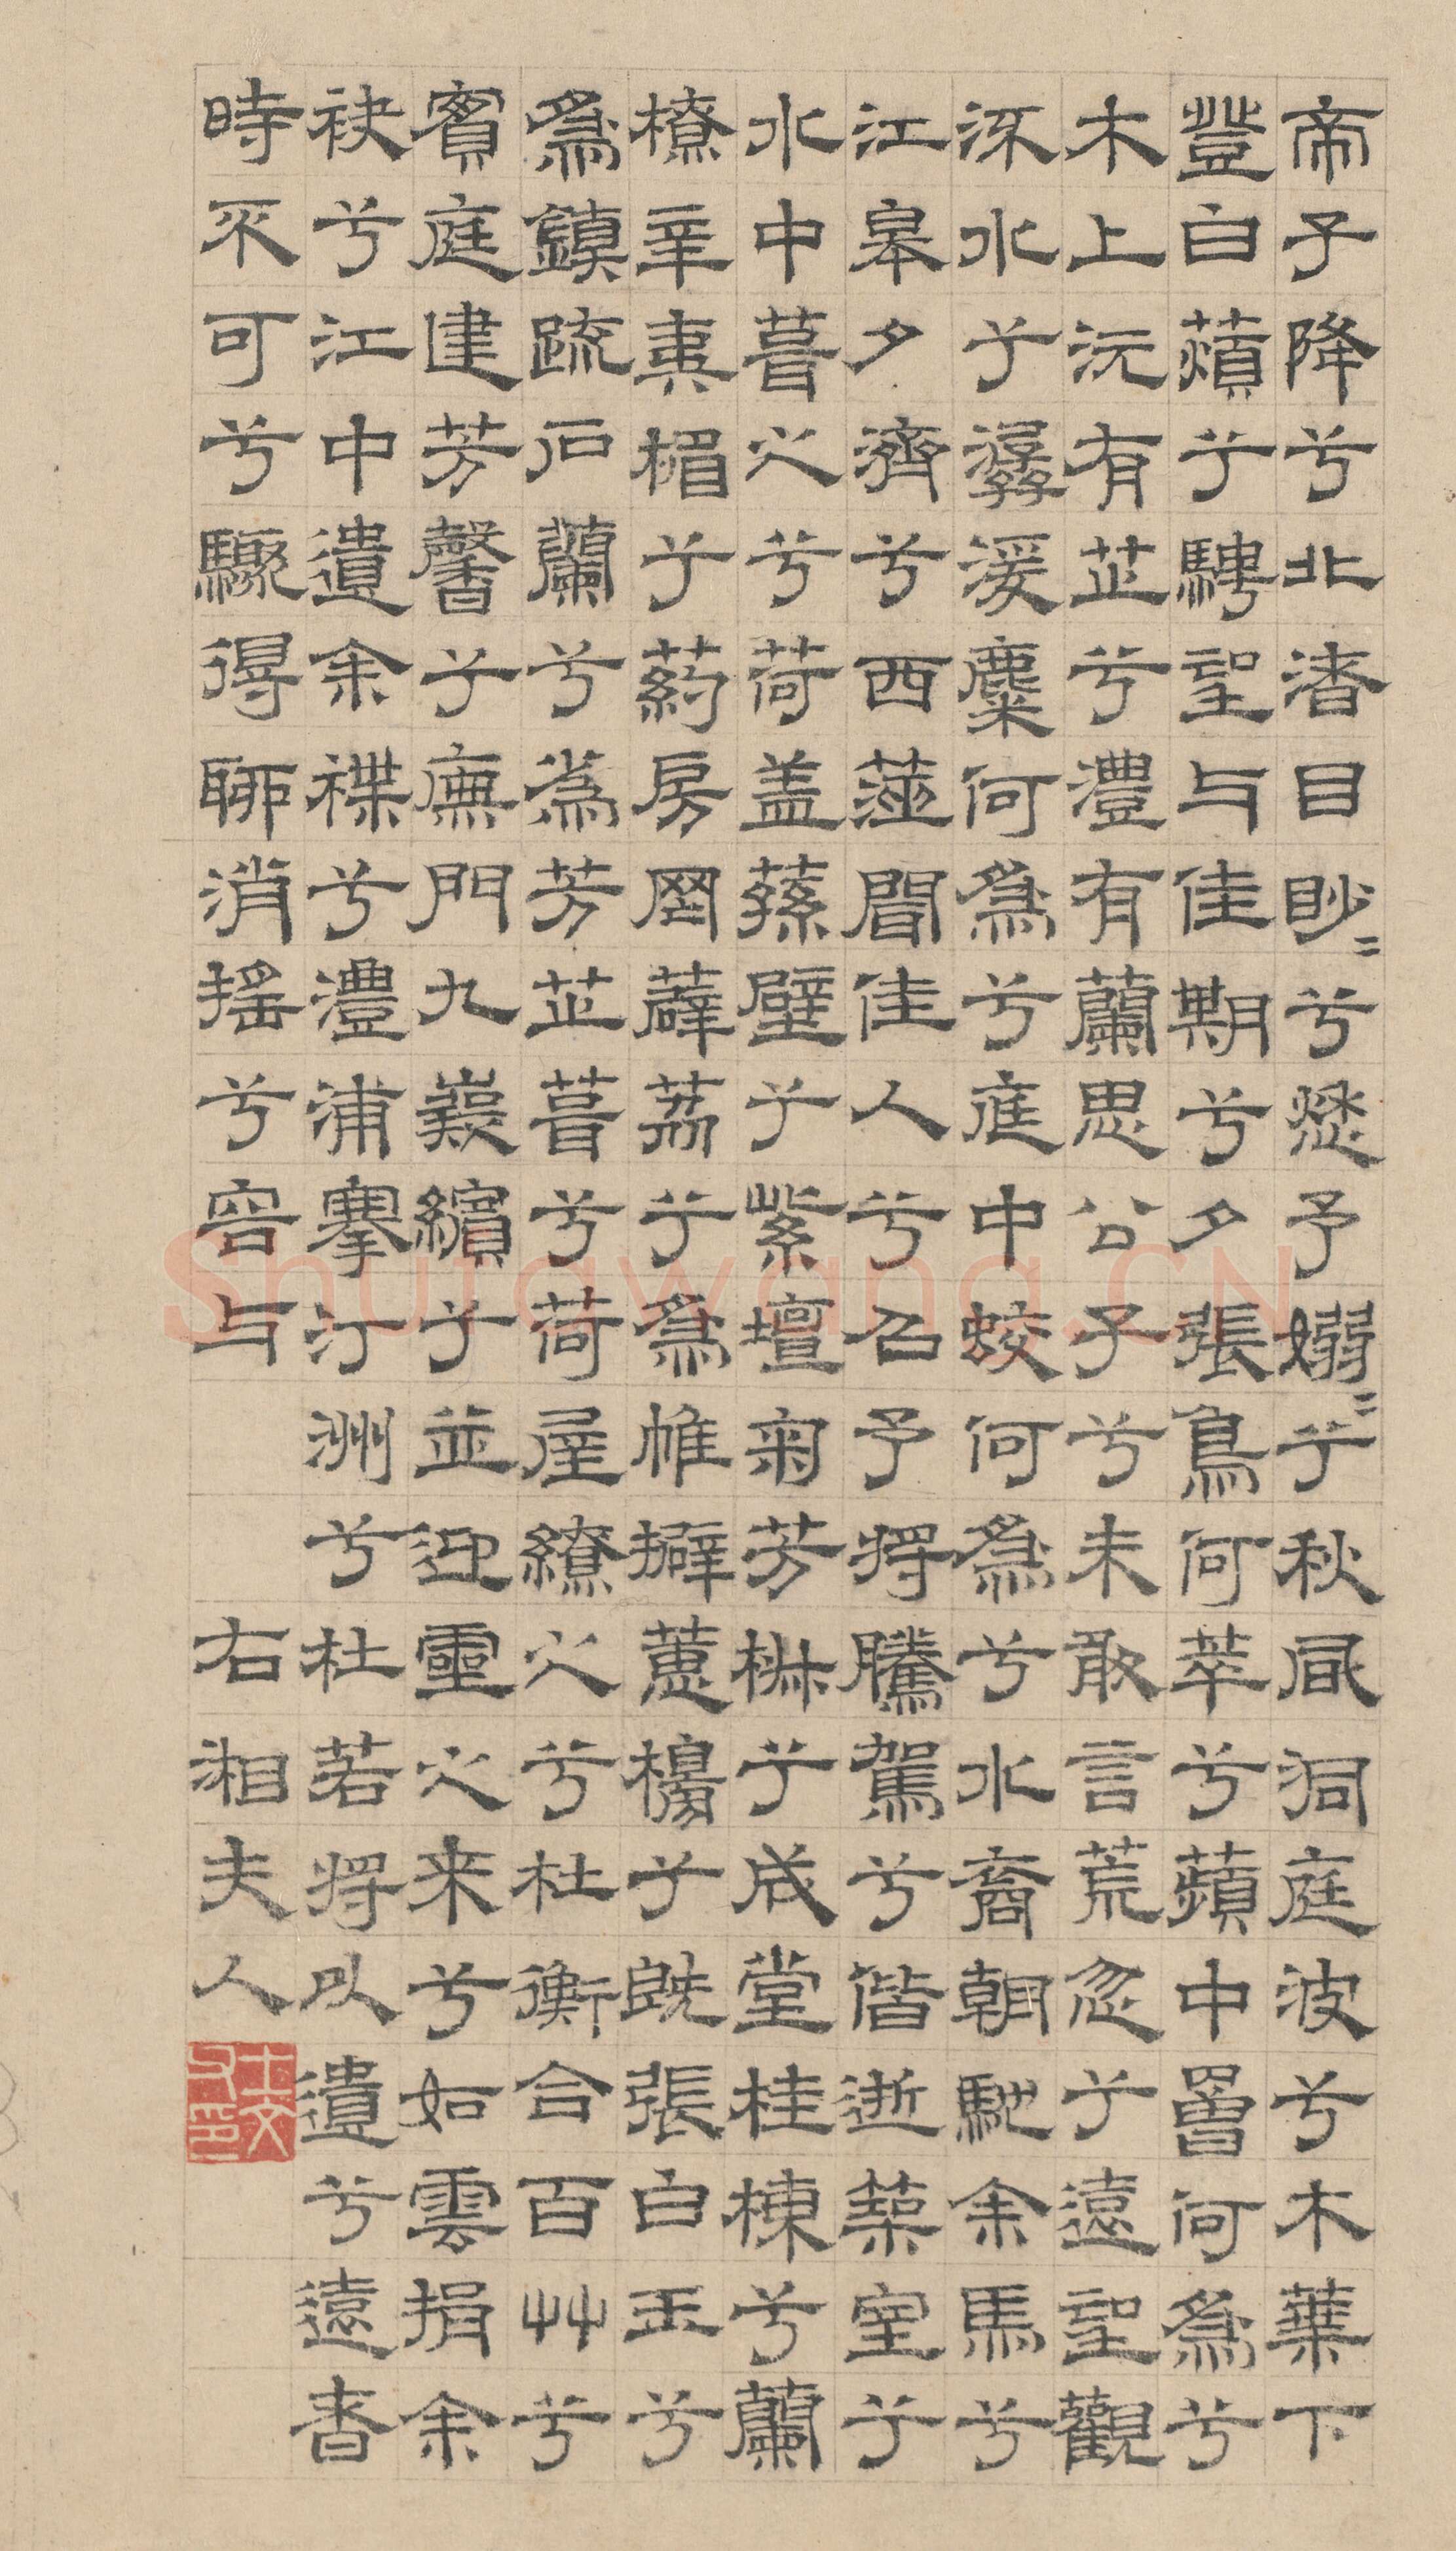 帝子降兮北渚目眇〻兮愁予嫋〻兮秋風洞庭波兮木葉下
登白薠兮騁望与佳期兮夕張鳥何萃兮蘋中罾何爲兮
木上沅有芷兮澧有蘭思公子兮未敢言荒忽兮遠望觀
流水兮潺湲麋何爲兮庭中蛟何爲兮水裔朝馳余馬兮
江皋夕濟兮西澨聞佳人兮召予將騰駕兮偕逝築室兮
水中葺之兮荷盖蓀壁兮紫壇匊芳椒兮成堂桂棟兮蘭
橑辛夷楣兮葯房罔薜荔兮爲帷擗蕙櫋兮既張白玉兮
爲鎮疏石蘭兮爲芳芷葺兮荷屋繚之兮杜衡合百艸兮
實庭建芳馨兮廡門九嶷繽兮並迎靈之来兮如雲捐余
袂兮江中遺余褋兮澧浦搴汀洲兮杜若將以遺兮遠者
時不可兮驟得聊消搖兮容与 右湘夫人
Shufawang.CN